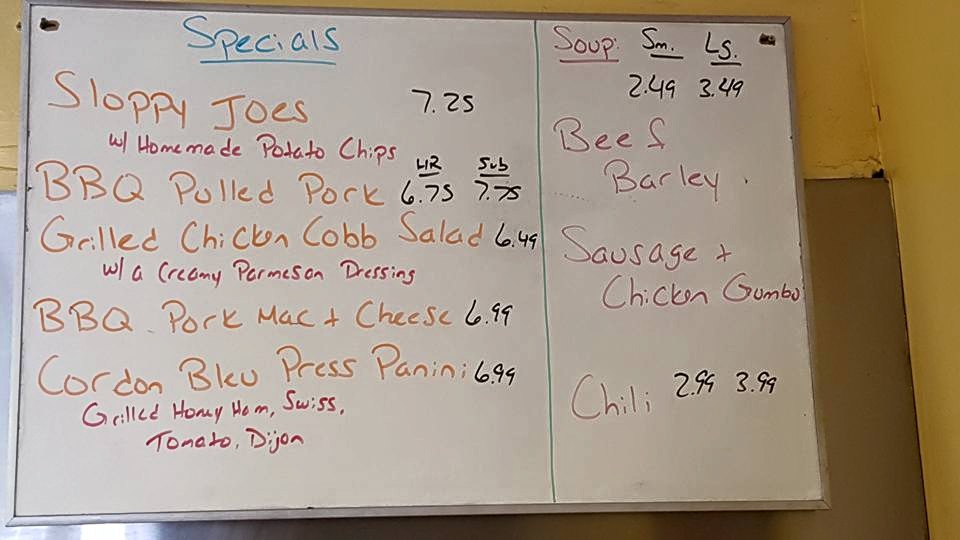 Specials
Sloppy Joes 7.25
w/ Homemade Potato Chips
HR Sub
BBQ Pulled Pork 6.75 7.75
Grilled Chicken Cobb Salad 6.49
w/ a Creamy Parmesan Dressing
BBQ Pork Mac + Cheese 6.99
Cordon Bleu Press Panini 6.99
Grilled Honey Ham, Swiss,
Tomato, Dijon
Soup: Sm. Lg.
2.49 3.49
Beef
Barley
Sausage +
Chicken Gumbo
Chili 2.99 3.99